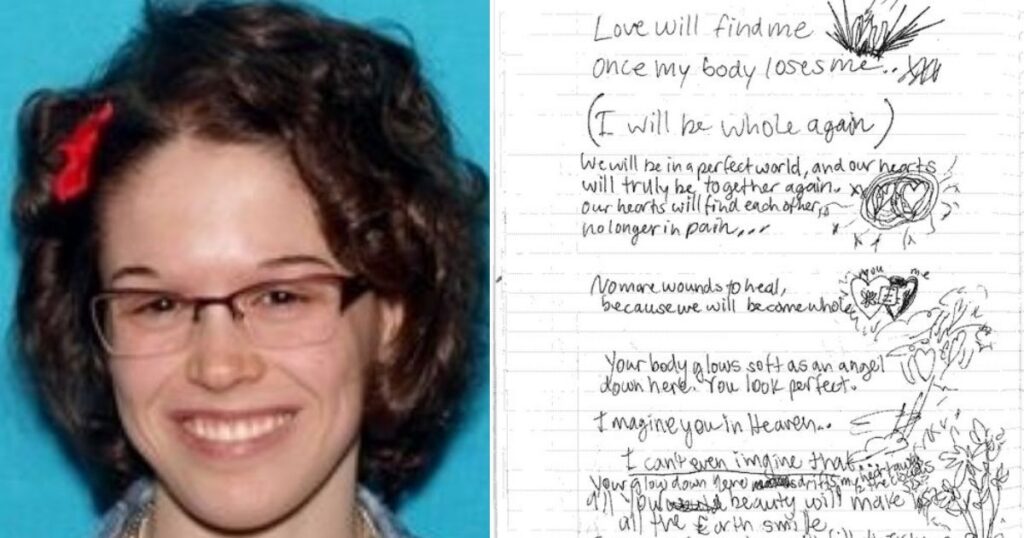 Love will find me
once my body loses me..
(I will be whole again)
We will be in a perfect world, and our hearts
will truly be together again.
our hearts will find each other,
no longer in pain...
you me
No more wounds to heal,
because we will become whole
Your body glows soft as an angel
down here. You look perfect.
I imagine you in Heaven..
I can't even imgine that
Your glow down here
all your beauty will make
all the Earth smile